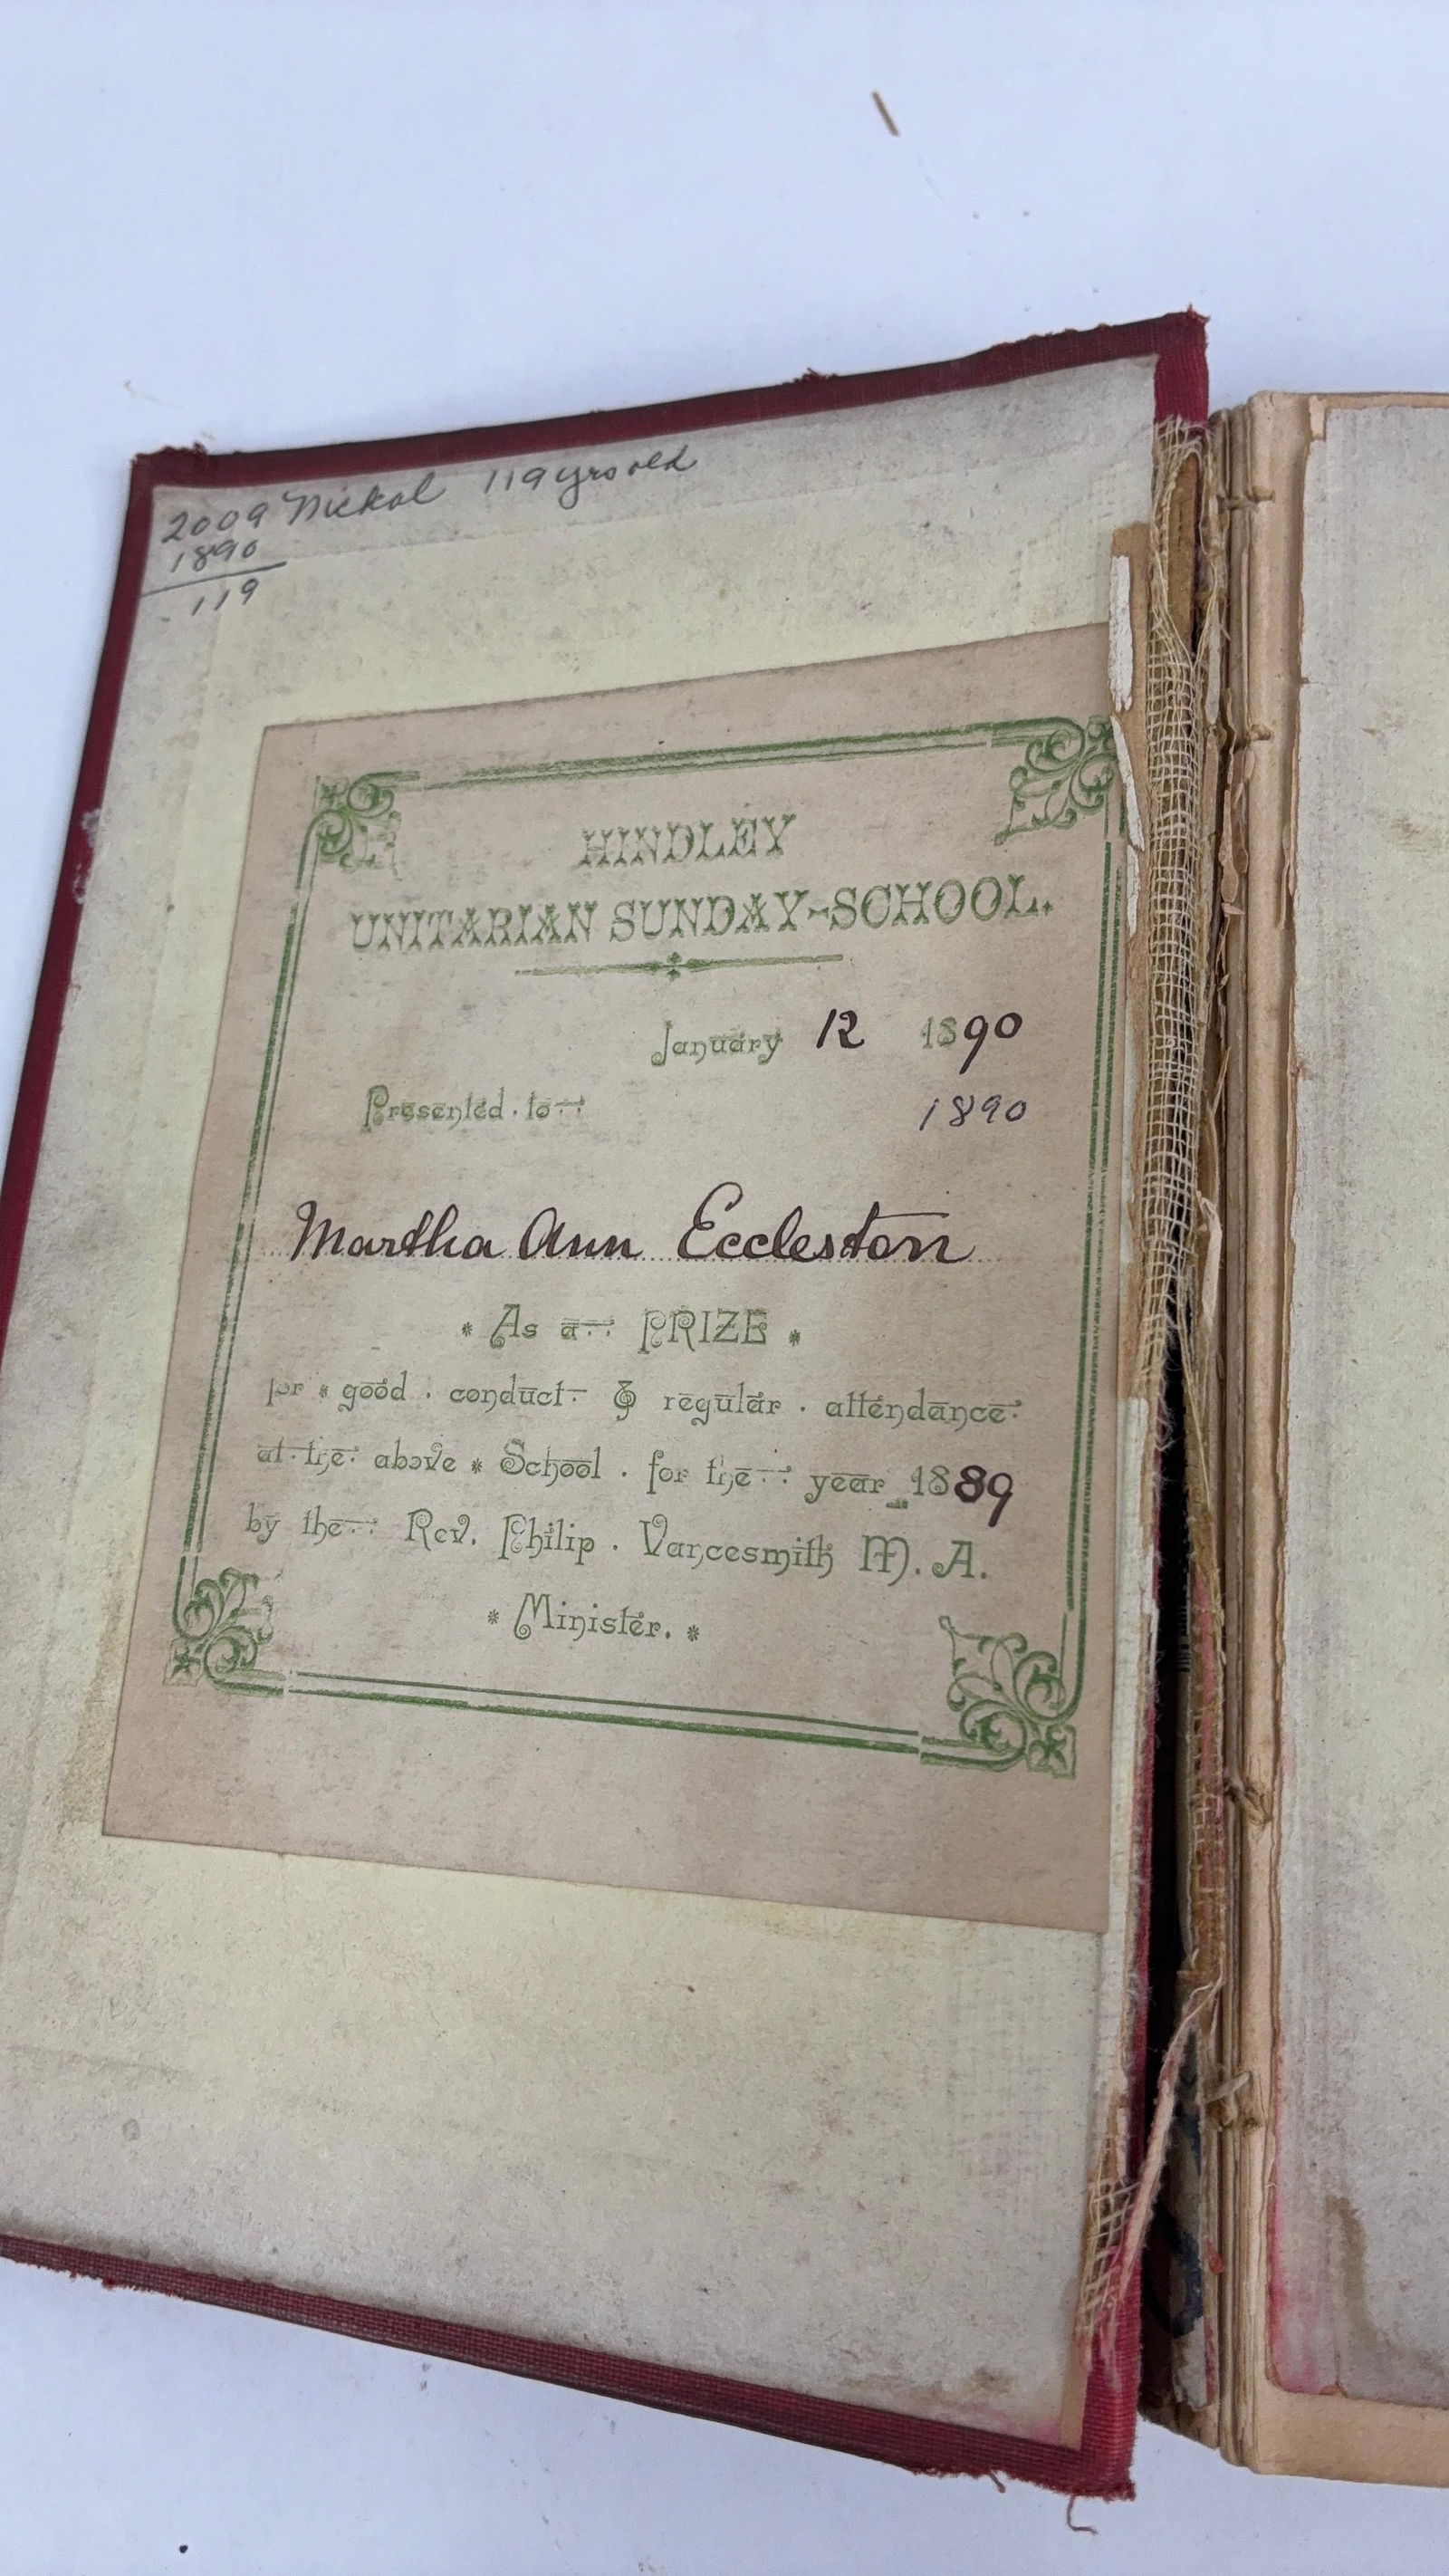 2009 Nickol 119 yrs old
1890
119
HINDLEY
UNITARIAN SUNDAY-SCHOOL.
January 12 1890
Presented to
1890
Martha Ann Eccleston
As a PRIZE
for good conduct & regular attendance
at the above School for the year 1889
by the Rev. Philip Vancesmith M. A.
Minister.